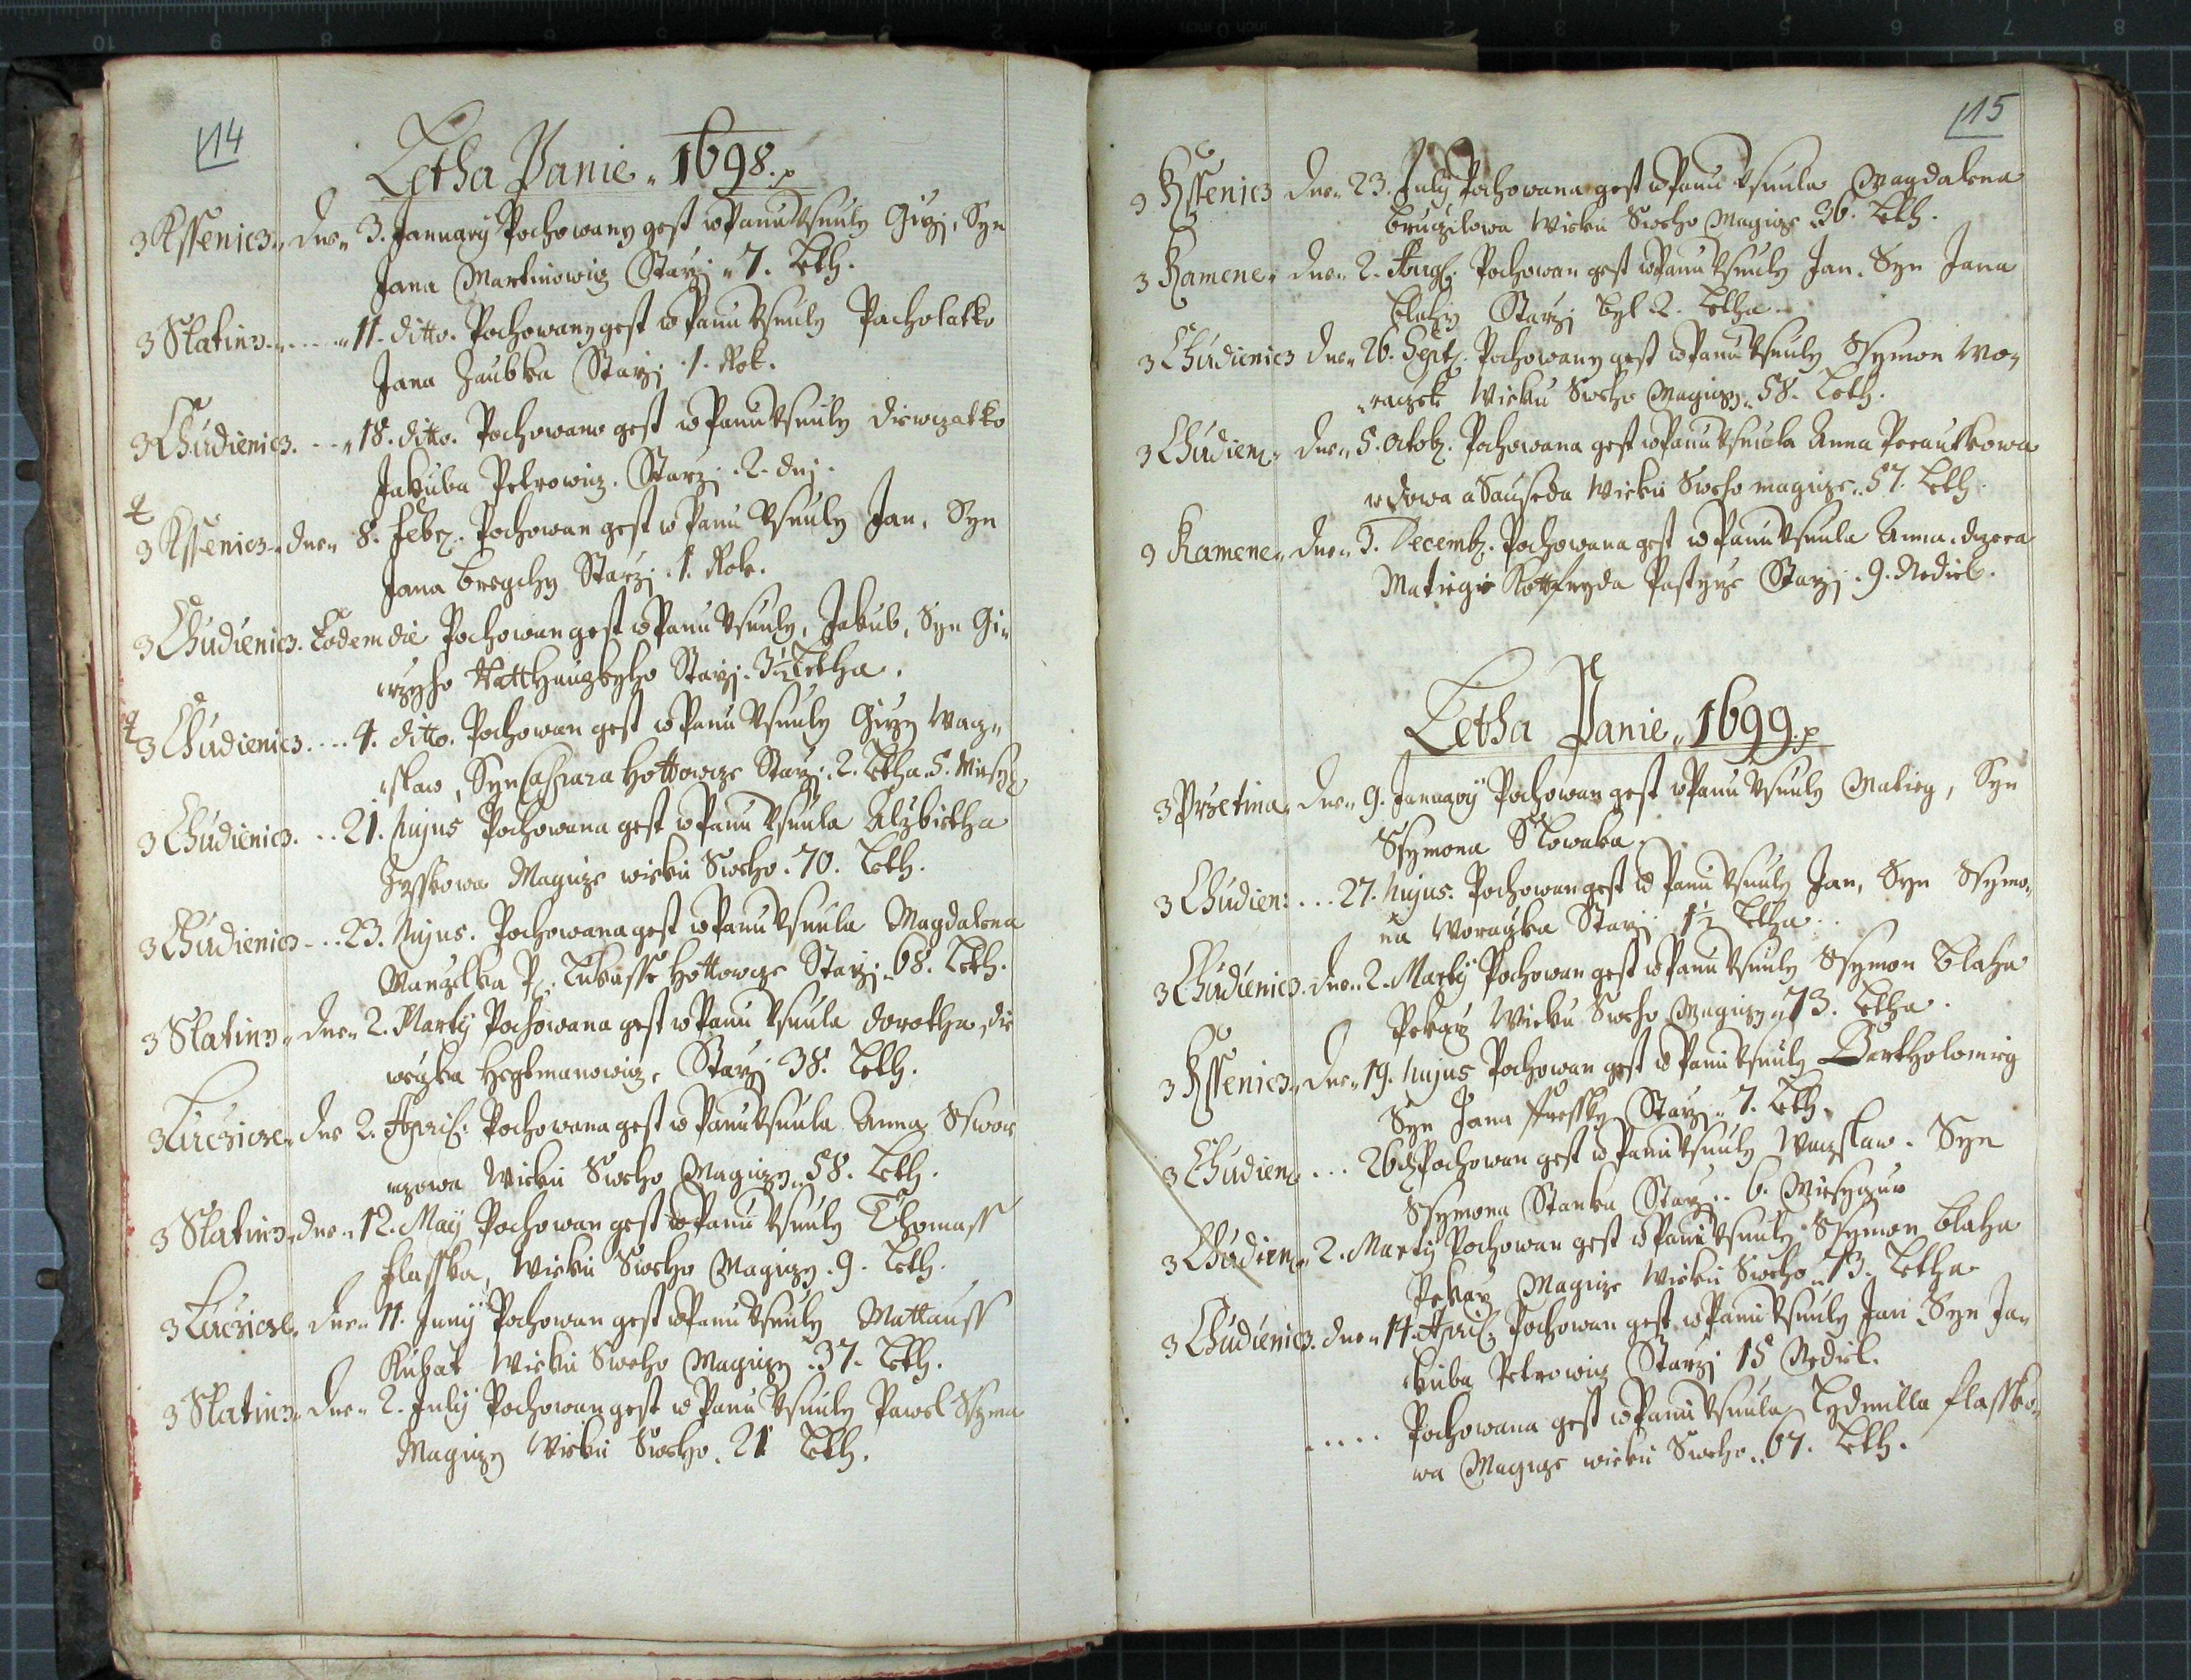 114
Letha Panie 1698.
z Kssenicz dne 3. January Pochowany gest w Panu Vsnuly Girzj, Syn
Jana Martinowicz Starzj 7. Leth.
z Slatiny 11. ditto. Pochowany gest w Panu Vsnuly Pacholatko
Jana Zaubka Starzj 1. Rok.
z Chudienicz 18. ditto. Pochowano gest w Panu Vsnuly diewczatko
Jakuba Petrowicz. Starzj 2. dnj.
z Kssenicz dne 8. Febr. Pochowan gest w Panu Vsnuly Jan, Syn
Jana Starzj 1. Rok.
z Chudienicz. Eodem die Pochowan gest w Panu Vsnuly, Jakub, Syn Gi
rzyho Starzj 3½ Letha.
z Chudienicz 4. ditto. Pochowan gest w Panu Vsnuly Girzy Wacz
slaw, Syn Caspara Hottowcze Starzj 2. Letha. 5.
z Chudienicz. 21. hujus Pochowana gest w Panu Vsnula Alzbietha
Magicze wieku Sweho. 70. Leth.
z Chudienicz 23. hujus. Pochowana gest w Panu Vsnula Magdalena
Manzelka P. Lukasse Hottowcze Starzj 68. Leth.
z Slatiny dne 2. Marty Pochowana gest w Panu Vsnula dorotha, die
weczka Hegtmanowicz, Starzj 38. Leth.
z Luczicze dne 2. April: Pochowana gest w Panu Vsnula Anna
Wieku Sweho Magiczy 58. Leth.
z Slatiny dne 12. May Pochowan gest w Panu Vsnuly Thomass
Flasska, Wieku Sweho Magiczy. 9. Leth.
z Luczicze dne 11. Juny Pochowan gest w Panu Vsnuly Mattauss
Kubat Wieku Sweho Magiczy 37. Leth.
z Slatiny dne 2. July Pochowan gest w Panu Vsnuly Pawel Ssyma
Magiczy Wieku Sweho. 21 Leth.
115
z Kssenicz dne 23. July Pochowana gest w Panu Vsnula Magdalena
Wieku Sweho Magicze 36. Leth.
z Kamene dne 2. Aug. Pochowan gest w Panu Vsnuly Jan. Syn Jana
Blahy Starzj byl 2. Letha
z Chudienicz dne 26. Sept. Pochowany gest w Panu Vsnuly Ssymon Wo
raczek Wieku Sweho Magiczy 58. Leth.
z Chudien dne 5. Octob. Pochowana gest w Panu Vsnula Anna
wdowa a Sauseda Wieku Sweho magicze 57. Leth.
z Kamene dne 3. Decemb. Pochowana gest w Panu Vsnula Anna. dczera
Matiege Pastyrze Starzj. 9. Nediel.
Letha Panie 1699.
z Przetina dne 9. January Pochowan gest w Panu Vsnuly Matieg, Syn
Ssymona Slowaka
z Chudien: 27. hujus. Pochowan gest w Panu Vsnuly Jan, Syn Ssymo
na Woraczka Starzj 1½ Letha
z Chudienicz. dne 2. Marty Pochowan gest w Panu Vsnuly Ssymon Blaha
Pekarz Wieku Sweho Magiczy 73. Letha.
z Kssenicz dne 19. hujus Pochowan gest w Panu Vsnuly Bartholomieg
Syn Jana Starzj 7. Leth.
z Chudien 26 Pochowan gest w Panu Vsnuly Waczslaw. Syn
Ssymona Stanka Starzj 6. Miesyczuw
z Chudien 2. Marty Pochowan gest w Panu Vsnuly Ssymon Blaha
Pekarz Magicze Wieku Sweho 73. Letha
z Chudienicz. dne 14. April. Pochowan gest w Panu Vsnuly Jan Syn Ja
kuba Petrowicz Starzj 15 Nediel.
..... Pochowana gest w Panu Vsnula Lydmilla Flassko
wa Magicze wieku Sweho 67. Leth.